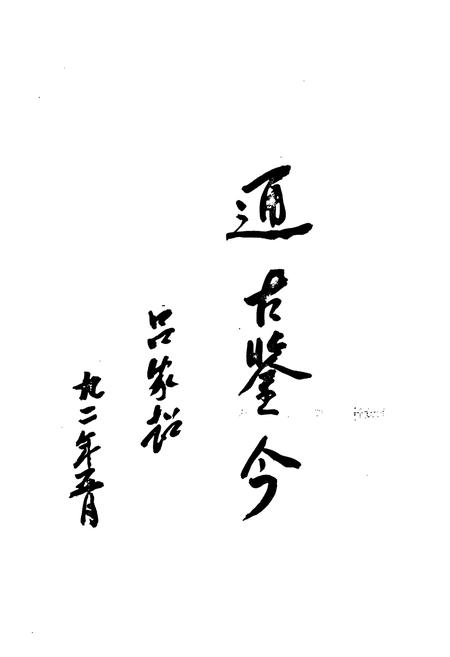 通古鉴今
吕家超
九二年五月